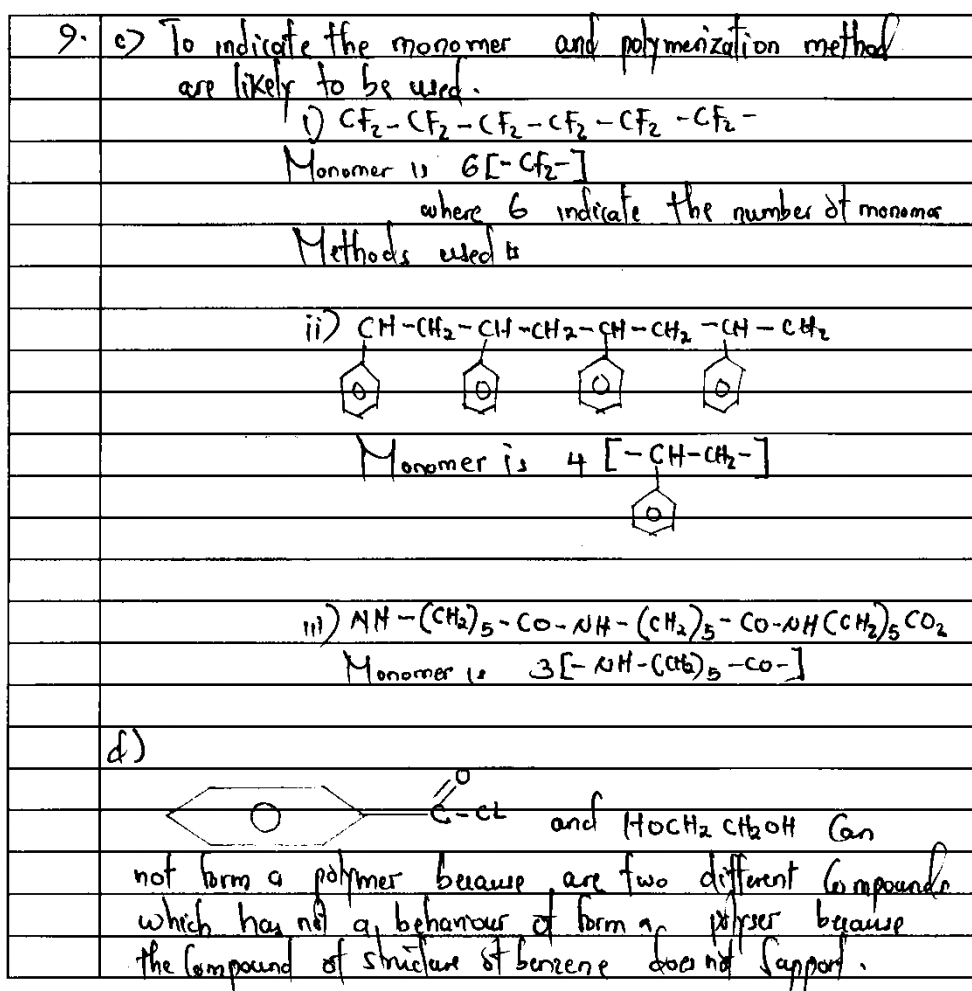 9. c) To indicate the monomer and polymerization method
are likely to be used.
i) CF₂-CF₂-CF₂-CF₂-CF₂-CF₂-
Monomer is 6[-CF₂-]
where 6 indicate the number of monomer
Methods used is
ii) CH-CH₂-CH-CH₂-CH-CH₂-CH-CH₂
Monomer is 4 [-CH-CH₂-]
iii) NH-(CH₂)₅-CO-NH-(CH₂)₅-CO-NH(CH₂)₅CO₂
Monomer is 3[-NH-(CH₂)₅-CO-]
d)
O
C-CL and HOCH₂CH₂OH Can
not form a polymer because are two different Compounds
which has not a behaviour of form a because
the Compound of structure of benzene does not Support.